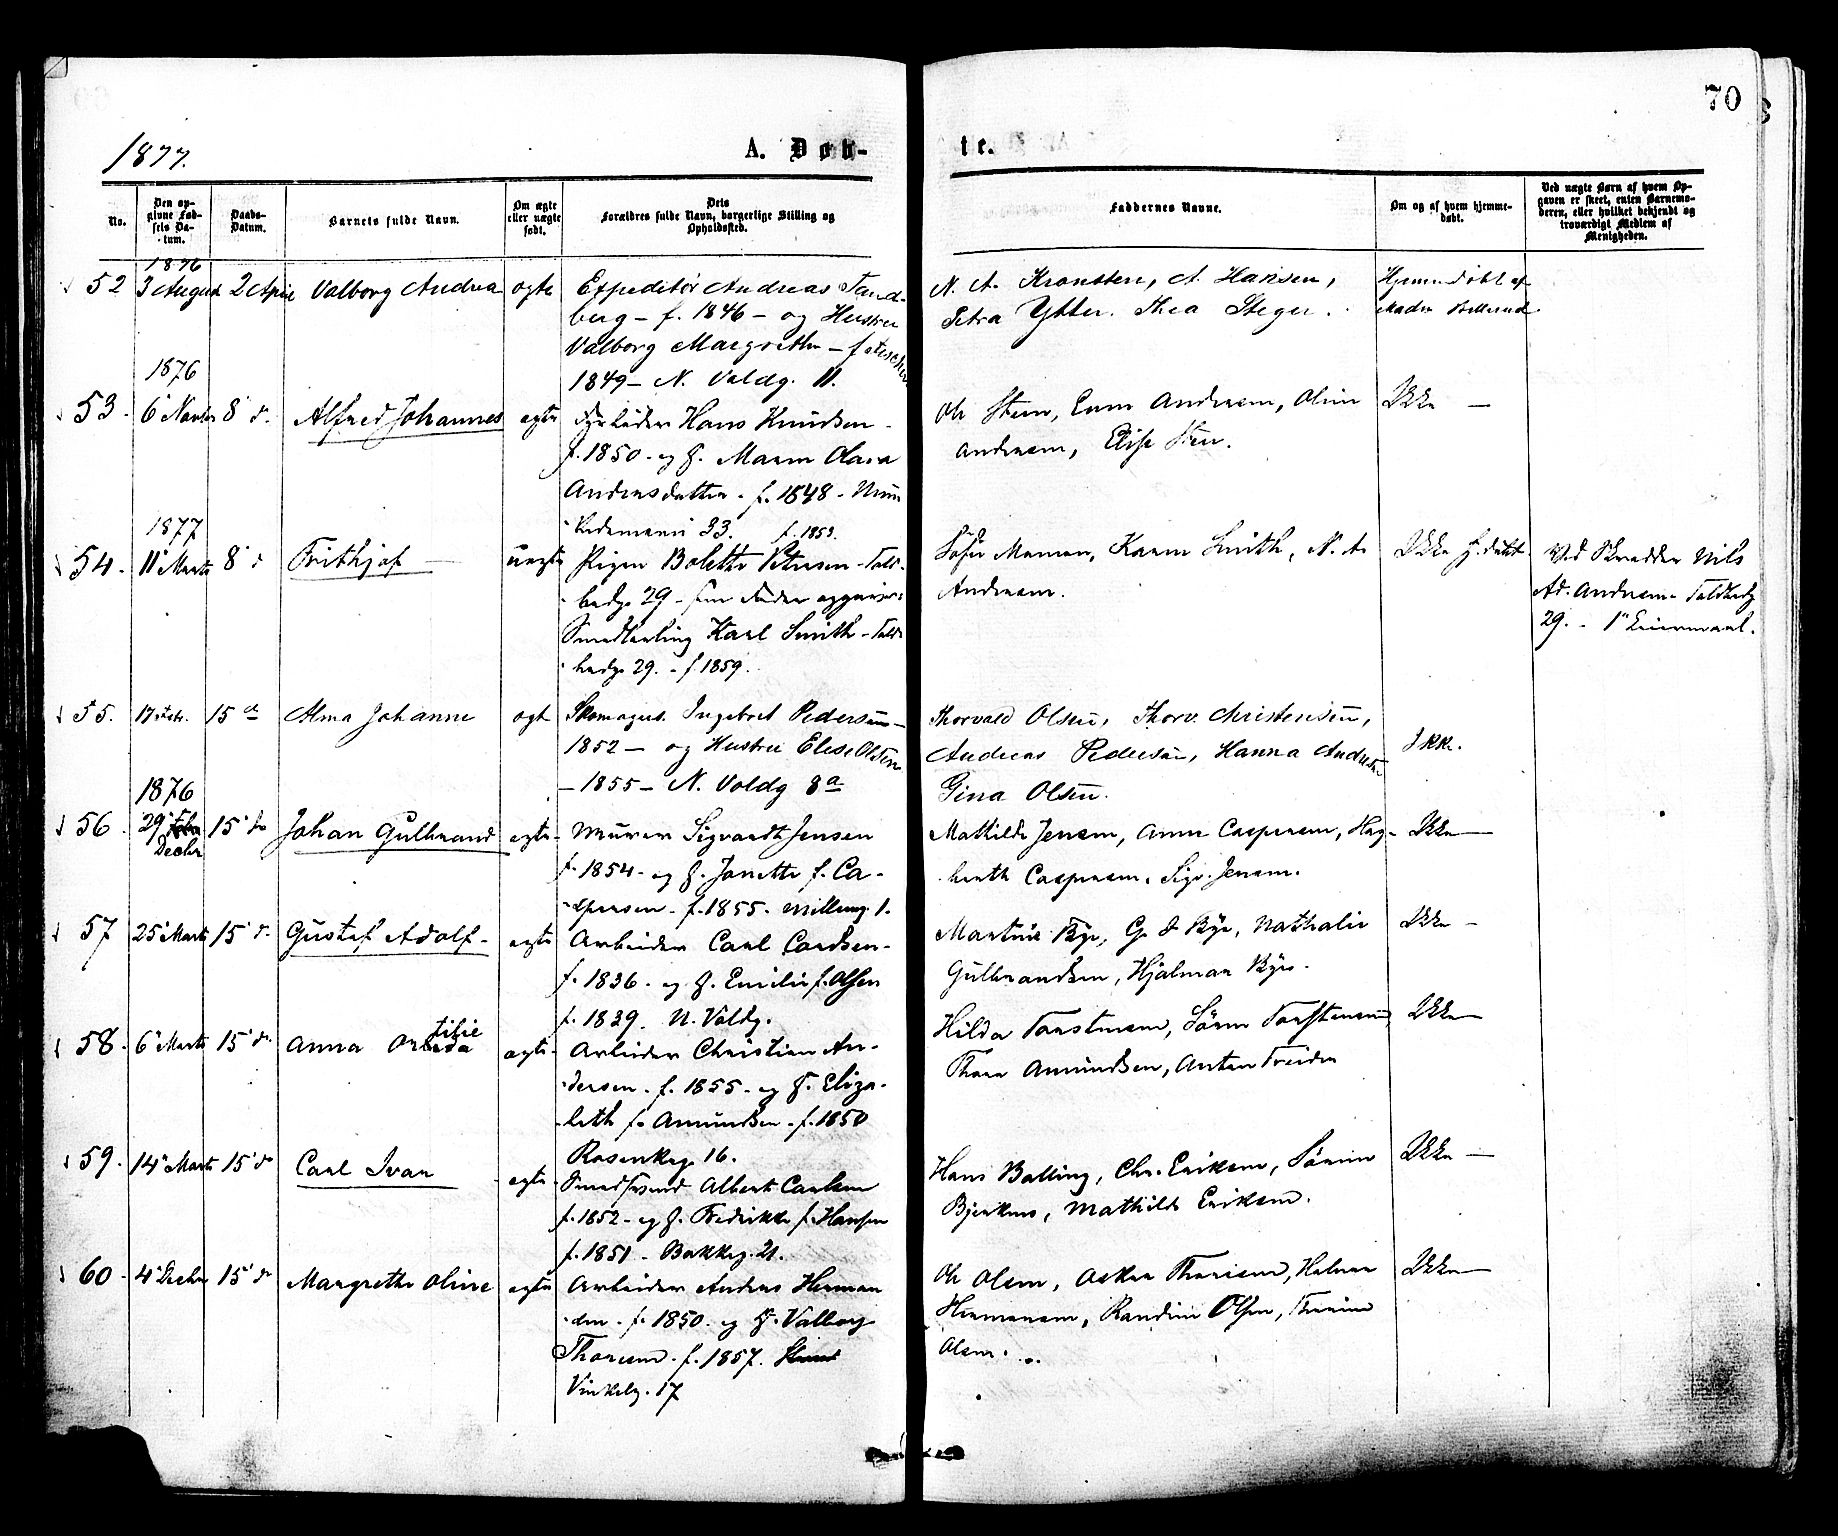 70
1877.
A. Døb-
te.
No.
Den op-
givne Fød-
sels Da-
tum.
Daabs-
Datum.
Barnets fulde Navn.
Om ægte
eller uægte
født.
Dets
Forældres fulde Navn, borgerlige Stilling og
Opholdssted.
Faddernes Navne.
Om og af hvem hjemme-
døbt.
Ved uægte Børn af hvem Op-
gaven er skeet, enten Barnemo-
deren, eller hvilket bekjendt og
troværdigt Medlem af
Menigheden.
1876
52 3 August 2 April Valborg Andrea ægte Expeditør Andreas Sand-
berg - f. 1846 - og Hustru
Valborg Margrethe - f.
1849 - N. Voldg. 11.
N. A. Kronsten, A. Hansen,
Petra Ytter. Thea Steger.
Hjemmedøbt af
Madm
1876
53. 6 Novbr 8 d. Alfred Johannes ægte Arbeider Hans Knudsen
f. 1850 - og H. Maren Olava
Andreasdatter - f. 1848 -
33.
Ole Steen, Andersen, Oline
Andersen, Elise Steen.
Ikke -
1877
54. 11 Marts 8 d Frithjof - uægte Pigen Bolette Petersen - f. 1853.
29 - som Fader opgives:
Smedlærling Karl Smith -
29. - f. 1859.
Karen Smith, N. A.
Andersen.
Ikke hj.døbt
Ved Skrædder Nils
Ad. Andersen
29. - 1' Leiermaal.
55. 17 15 d Alma Johanne ægte Skomager. Ingebret Pedersen -
1852 - og Hustru Elise Olsen
- 1855 - N. Voldg 8a
Thorvald Olsen, Thorv. Christensen,
Andreas Pedersen, Hanna
Gina Olsen.
Ikke.
1876
56. 29' Febr Decbr 15' do Johan Gulbrand ægte Murer Sigvardt Jensen
f. 1854 - og H. Janette f. Ca-
spersen - f. 1855. 1.
Mathilde Jensen, Anne Caspersen, Hag-
barth Caspersen. Sigv. Jensen.
Ikke -
57 25' Marts 15' d. Gustaf Adolf - ægte Arbeider Carl Carlsen -
f. 1836 - og H. Emilie f. Olsen
f. 1839. N. Voldg.
Martine Bye, G. Bye, Nathalie
Gulbrandsen, Hjalmar Bye.
Ikke -
58. 6' Marts 15' d. Anna tilie ægte Arbeider Christian An-
dersen - f. 1855 - og H. Eliza-
beth f. Amundsen - f. 1850
16.
Hilda Torstensen, Søren Torstensen
Thora Amundsen, Anton
Ikke
59. 14' Marts 15' do Carl Ivar ægte Smedsvend Albert Carlsen
f. 1852 - og H. Fredrikke f. Hansen
f. 1851 - Bakkeg. 21.
Hans Balling, Chr. Eriksen, Sørine
Bjerknes, Mathilde Eriksen.
Ikke -
60 - 4' Decbr 15' do Margrethe Oline ægte Arbeider Anders Herman
- f. 1850 - og H. Valborg
Thoresen - f. 1857.
Vinkelg. 17
Ole Olsen, Oskar Thoresen, Helmer
Hermansen, Randine Olsen, Thorine
Olsen.